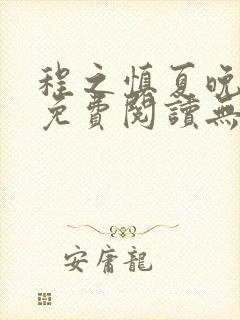 程之慎夏晚
免費閱讀無
安庸龍